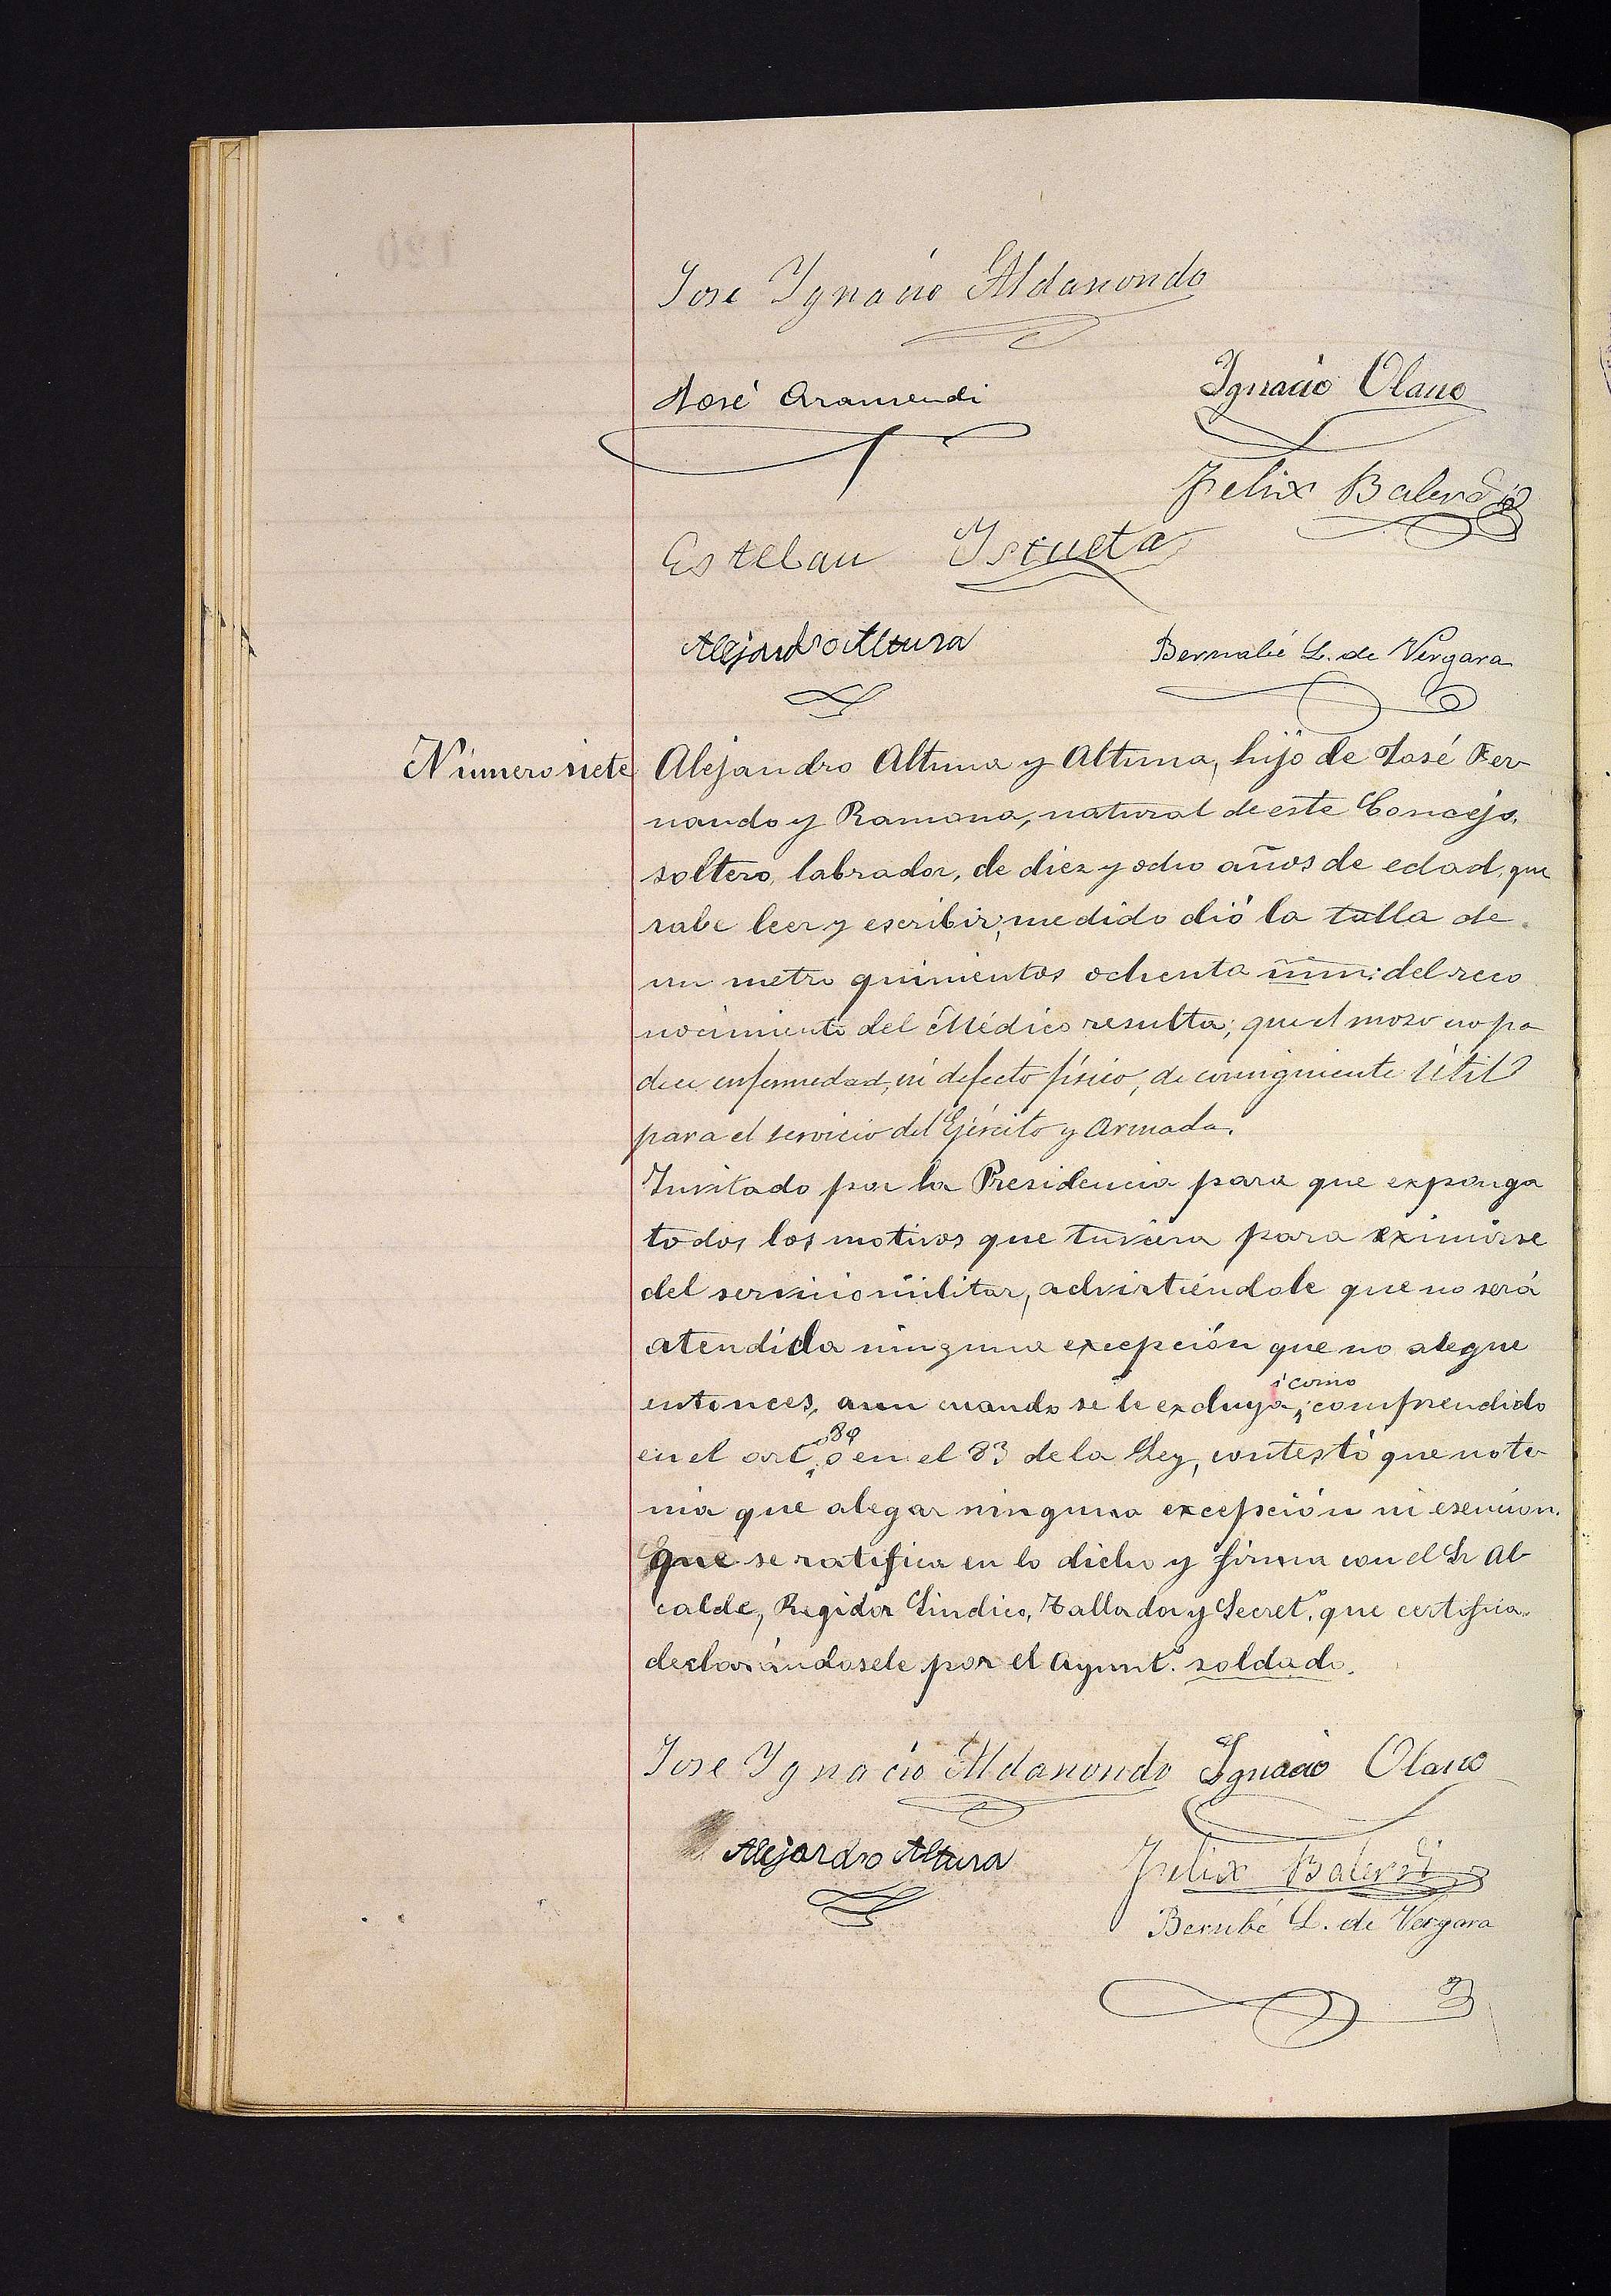 Jose Ygnacio Aldanondo
José Aramendi
Ygnacio Olano
Felix Balerdi
Esteban Iscueta
Alejandro Altuna
Bernabé L. de Vergara
Número siete
Alejandro Altuna y Altuna, hijo de José Fer-
nando y Ramona, natural de este Concejo,
soltero, labrador, de diez y ocho años de edad, que
sabe leer y escribir, medido dió la talla de
un metro quinientos ochenta m̅m̅; del reco
nocimiento del Médico resulta; que el mozo no pa
dece enfermedad, ni defecto físico, de consiguiente útil
para el servicio del Ejército y Armada.
Invitado por la Presidencia para que exponga
todos los motivos que tuviera para eximirse
del servicio militar, advirtiéndole que no será
atendida ninguna excepción que no alegue
entonces, aun cuando se le excluya, como comprendido
en el art. 80 ó en el 83 de la Ley, contestó que no te-
nia que alegar ninguna excepción ni esencion.
Que se ratifica en lo dicho y firma con el Sr Al-
calde, Regidor Síndico, Tallador y Secret.º que certifica.
declarándosele por el Ayunt.º soldado.
Jose Ygnacio Aldanondo Ygnacio Olano
Alejandro Altuna
Felix Balerdi
Bernbé L. de Vergara